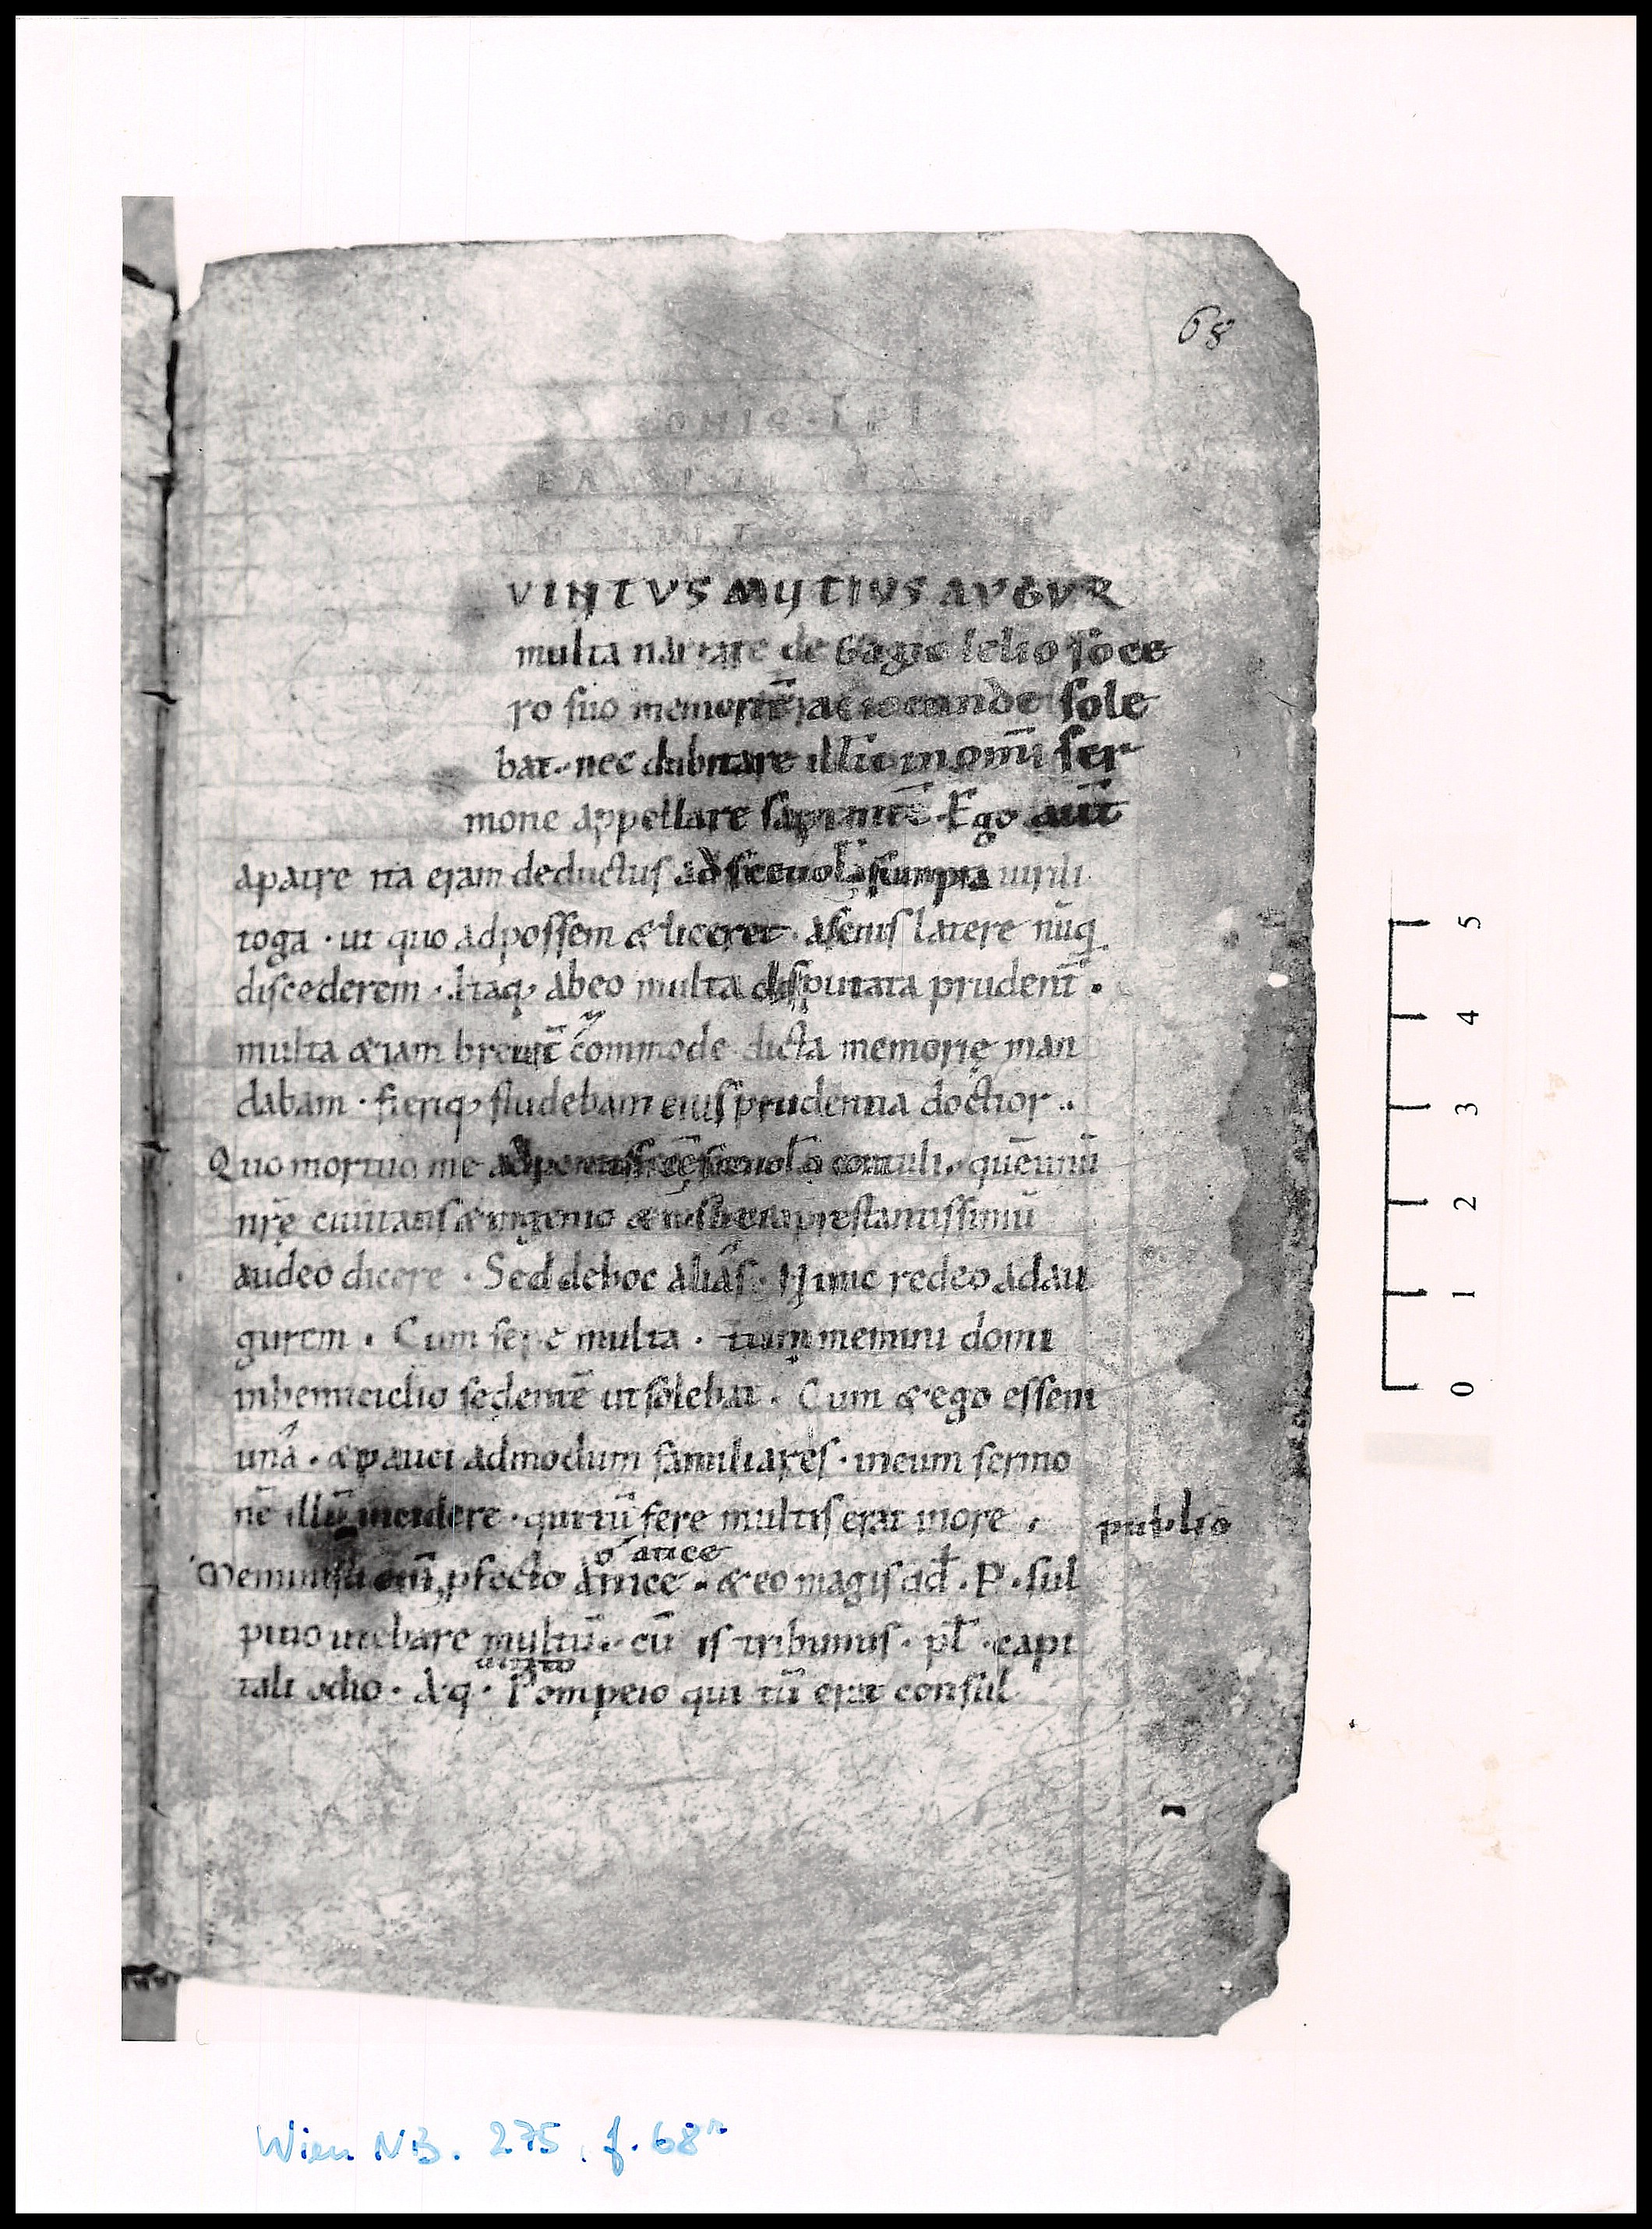 68
VINTVS MVTIUS AVGVR
multa narrare de Gagio lelio soce
ro suo memorit̄ ac iocunde sole
bat. nec dubitare illū in om̄i ser
mone appellare sapientē. Ego aut̄
apatre ita eram deductus ad scęuolā sumpta uirili
toga · ut quo ad possem & liceret · asenis latere nūq̣
discederem · Itaq; abeo multa disputata prudent̄ ·
multa &iam breuit̄ commode dicta memorię man
dabam · fieriq; studebam eius prudentia doctior ..
Quo mortuo me ad pontificē scęuolā contuli · quē unū
nr̄ę ciuitatis & ingenio & iusticia prestantissimū
audeo dicere · Sed de hoc aliâs · Nunc redeo ad au
gurem · Cum sepe multa · tum memini domi
in hemiciclio sedentē ut solebat · Cum & ego essem
unâ · & pauci admodum familiares · in eum sermo
nē illū incidere · qui tū fere multis erat in ore ;
publio
o attice
Meministi enī pfecto amice · & eo magis qd̄ · P · sul
pitio utebare multū · cū is tribunus · pl̄ · capi
tali odio · A · q · Pompeio qui tū erat consul
0 1 2 3 4 5
Wien NB. 275, f. 68r